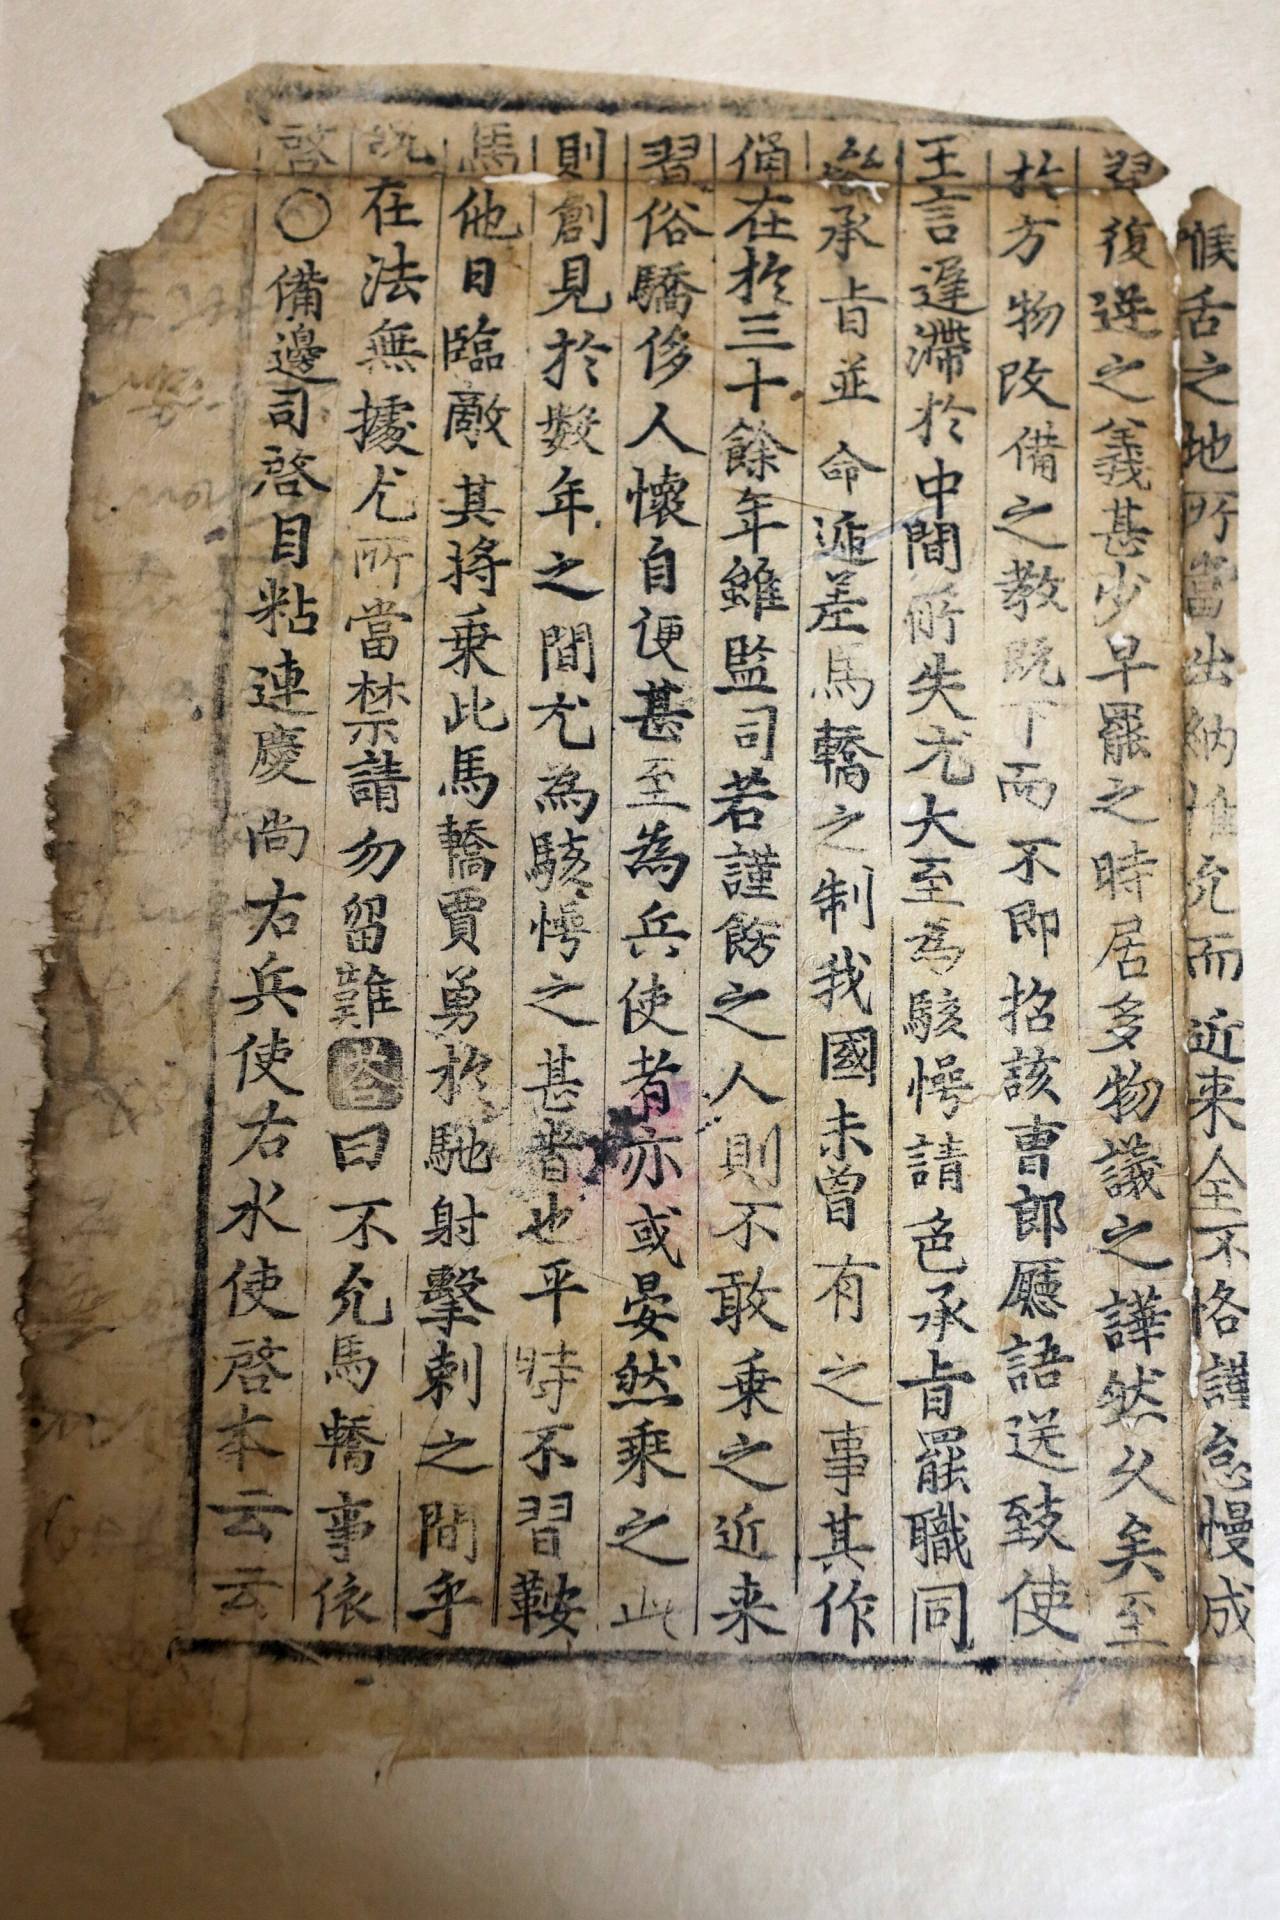 喉舌之地所當出納惟允而近来全不恪謹怠慢成
習復逆之義甚少早罷之時居多物議之譁然久矣至
於方物改備之教既下而不即招該曺郎廳語送致使
王言遅滯於中間所失尤大至為駭愕請色承旨罷職同
承旨並命逓差馬轎之制我國未曽有之事其作
俑在於三十餘年雖監司若謹飭之人則不敢乗之近来
習俗驕侈人懐自便甚至為兵使者亦或晏然乗之此
則創見於數年之間尤為駭愕之甚者也平時不習鞍
馬他日臨敵其將乗此馬轎賈勇於馳射擊刺之間乎
既在法無據尤所當禁請勿留難答曰不允馬轎事依
啓○備邊司啓目粘連慶尚右兵使右水使啓本云云